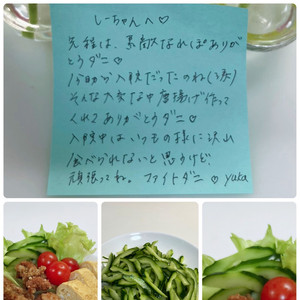 しーちゃんへ♡
先程は、素敵なれぽありが
とうダニ♡
今助が入院だったのね(;涙)
そんな大変な中唐揚げ作って
くれてありがとうダニ♡
入院中はいつもの様に沢山
食べられないと思うけど
頑張ってね。ファイトダニ♡ yuka